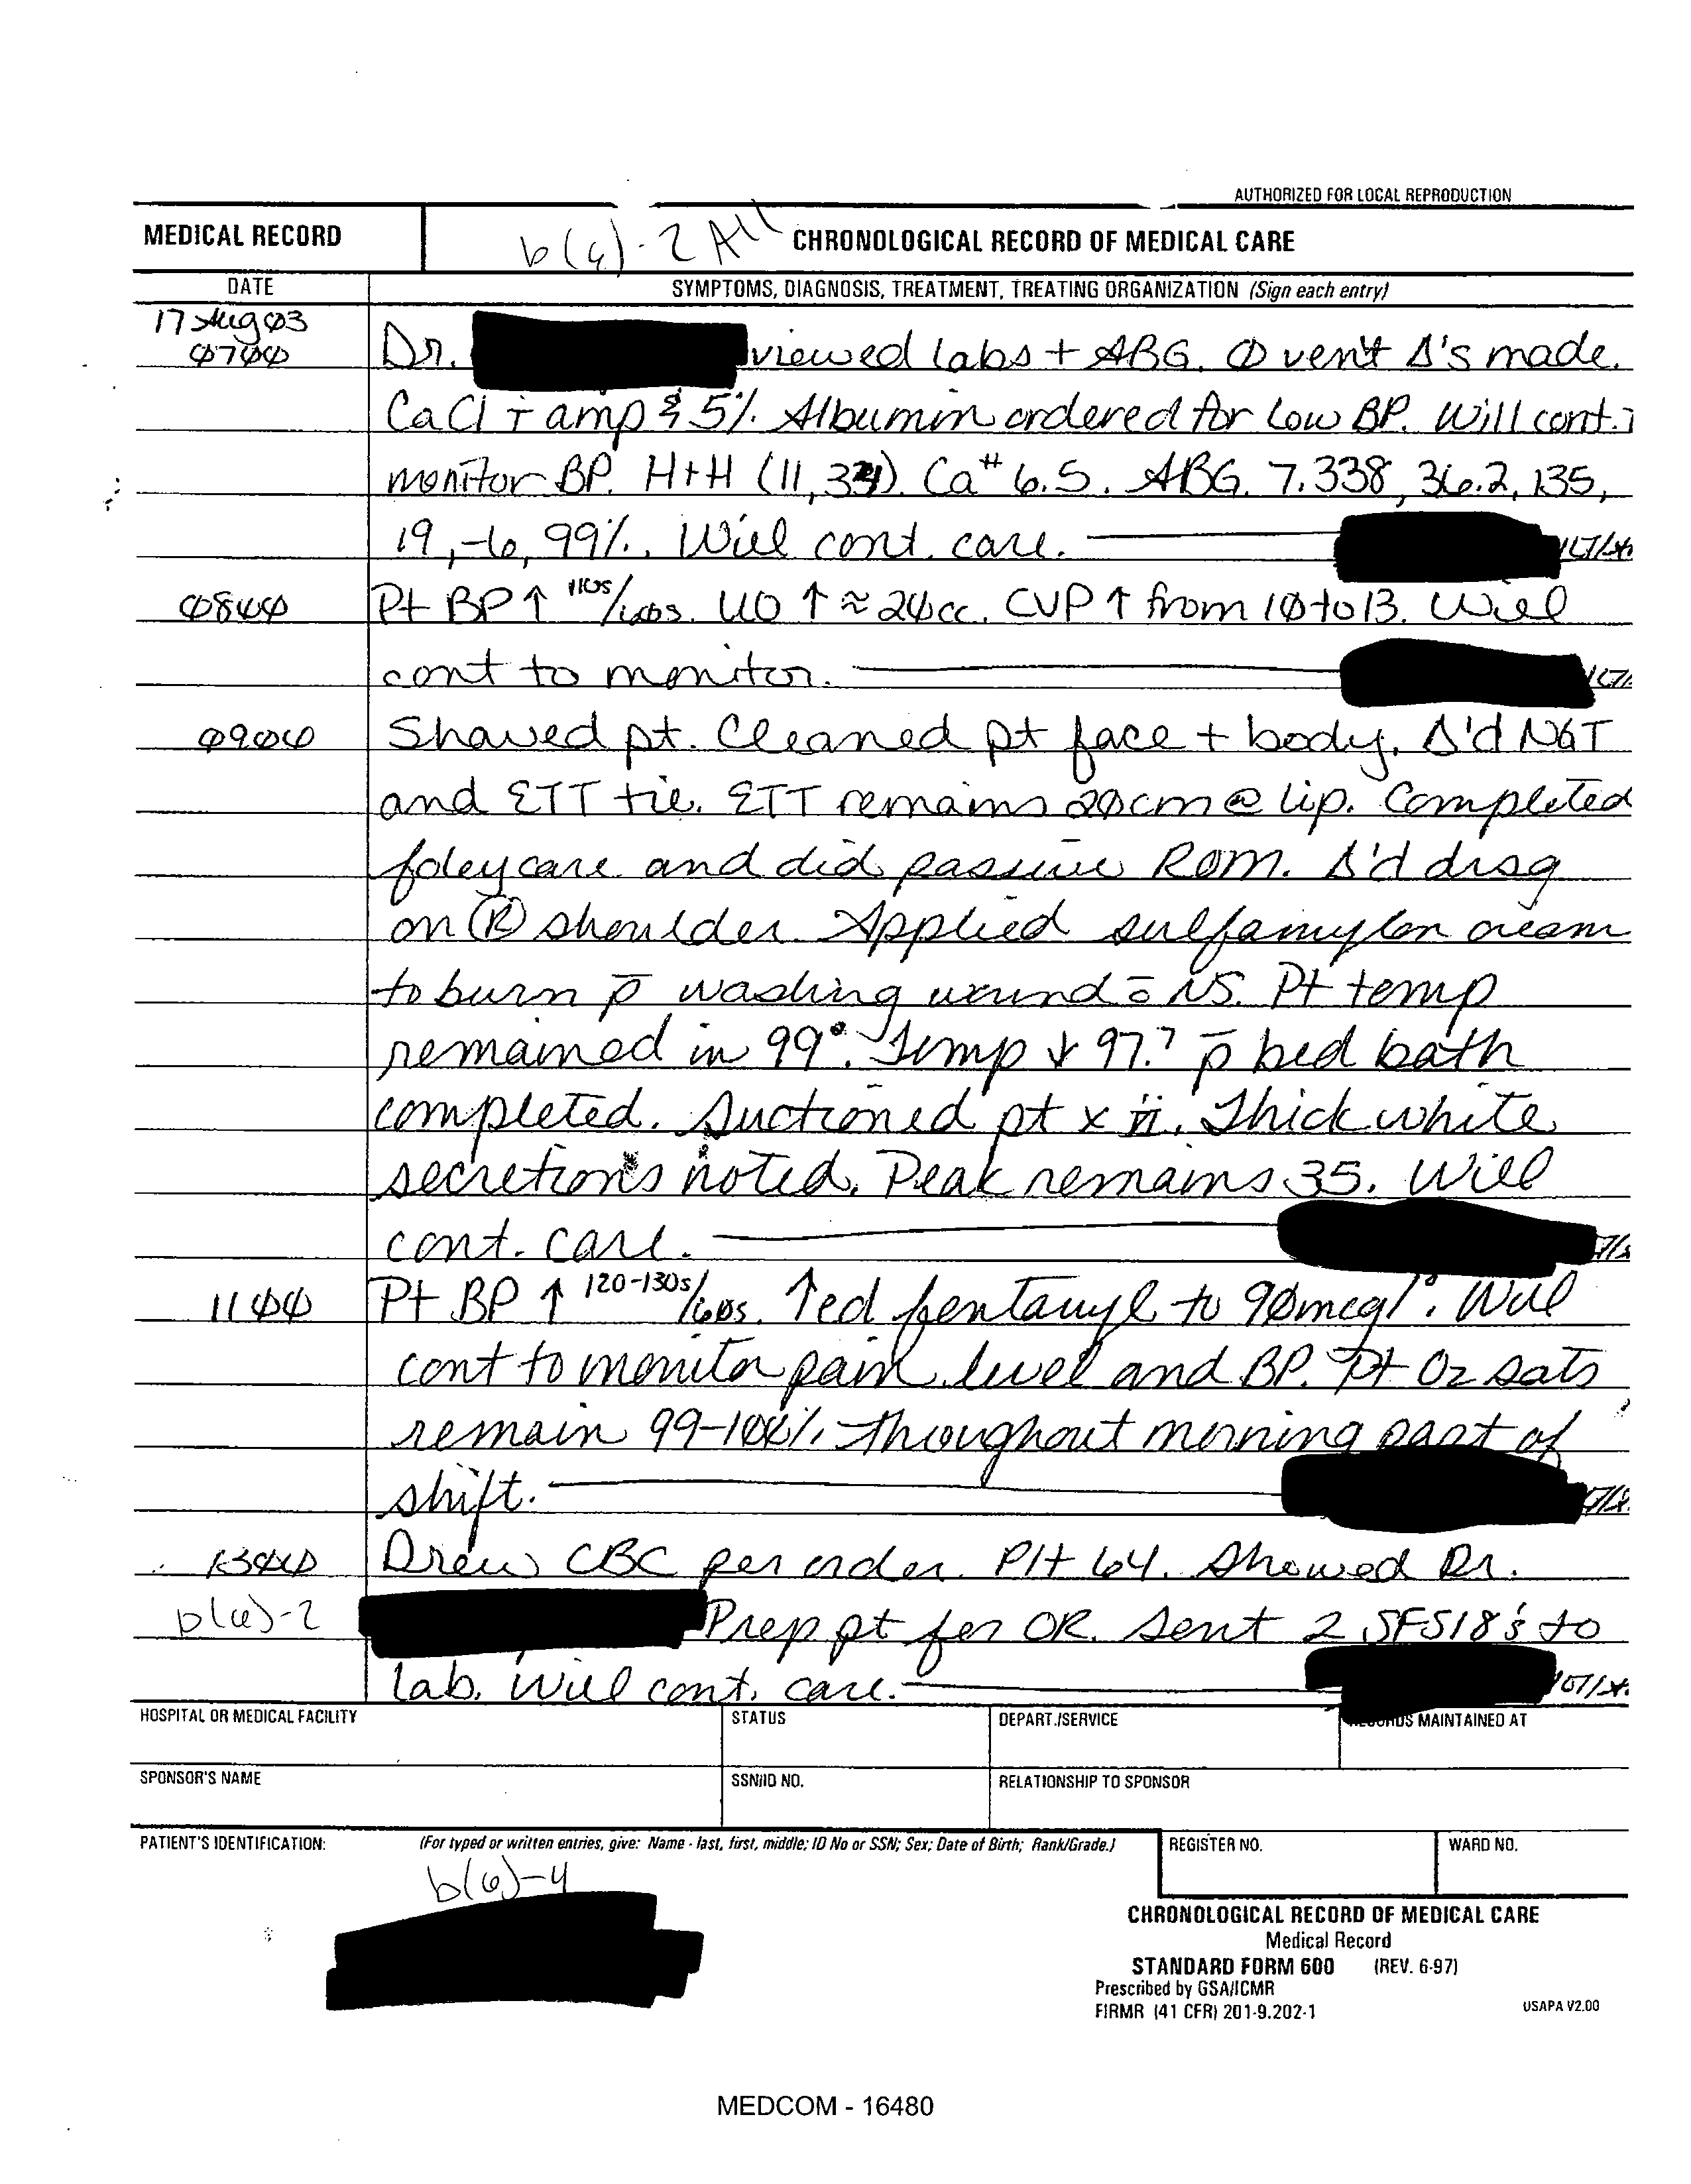 AUTHORIZED FOR LOCAL REPRODUCTION
MEDICAL RECORD
b(6)-2 All
CHRONOLOGICAL RECORD OF MEDICAL CARE
DATE
SYMPTOMS, DIAGNOSIS, TREATMENT, TREATING ORGANIZATION (Sign each entry)
17 Aug 03
0700 Dr. viewed labs + ABG. Ø vent Δ's made.
CaCl ī amp & 5% Albumin ordered for low BP. Will cont.
monitor BP. H+H (11, ). Ca 6.5. ABG. 7.338, 36.2, 135,
19, -6, 99%. Will cont. care.
0800 Pt BP ↑ 110s/60s. UO ↑ ≈ 20cc. CVP ↑ from 10 to 13. Will
cont to monitor.
0900 Shaved pt. Cleaned pt face + body. Δ'd NGT
and ETT tie. ETT remains 20cm @ lip. Completed
foley care and did passive ROM. Δ'd drsg
on Ⓡ shoulder. Applied sulfamylon cream
to burn p̄ washing wound c̄ NS. Pt temp
remained in 99°. Temp ↓ 97.7 p̄ bed bath
completed. Suctioned pt x ii. Thick white
secretions noted. Peak remains 35. Will
cont. care.
1100 Pt BP ↑ 120-130s/60s. ↑ed fentanyl to 90mcg/°. Will
cont to monitor pain level and BP. Pt O2 sats
remain 99-100%. Throughout morning part of
shift.
1300 Drew CBC per order. Plt 64. Showed Dr.
b(6)-2 Prep pt for OR. Sent 2 SF518's to
lab. Will cont. care.
HOSPITAL OR MEDICAL FACILITY
STATUS
DEPART./SERVICE
MAINTAINED AT
SPONSOR'S NAME
SSN/ID NO.
RELATIONSHIP TO SPONSOR
PATIENT'S IDENTIFICATION:
(For typed or written entries, give: Name - last, first, middle; ID No or SSN; Sex; Date of Birth; Rank/Grade.)
REGISTER NO.
WARD NO.
b(6)-4
CHRONOLOGICAL RECORD OF MEDICAL CARE
Medical Record
STANDARD FORM 600 (REV. 6-97)
Prescribed by GSA/ICMR
FIRMR (41 CFR) 201-9.202-1
USAPA V2.00
MEDCOM - 16480